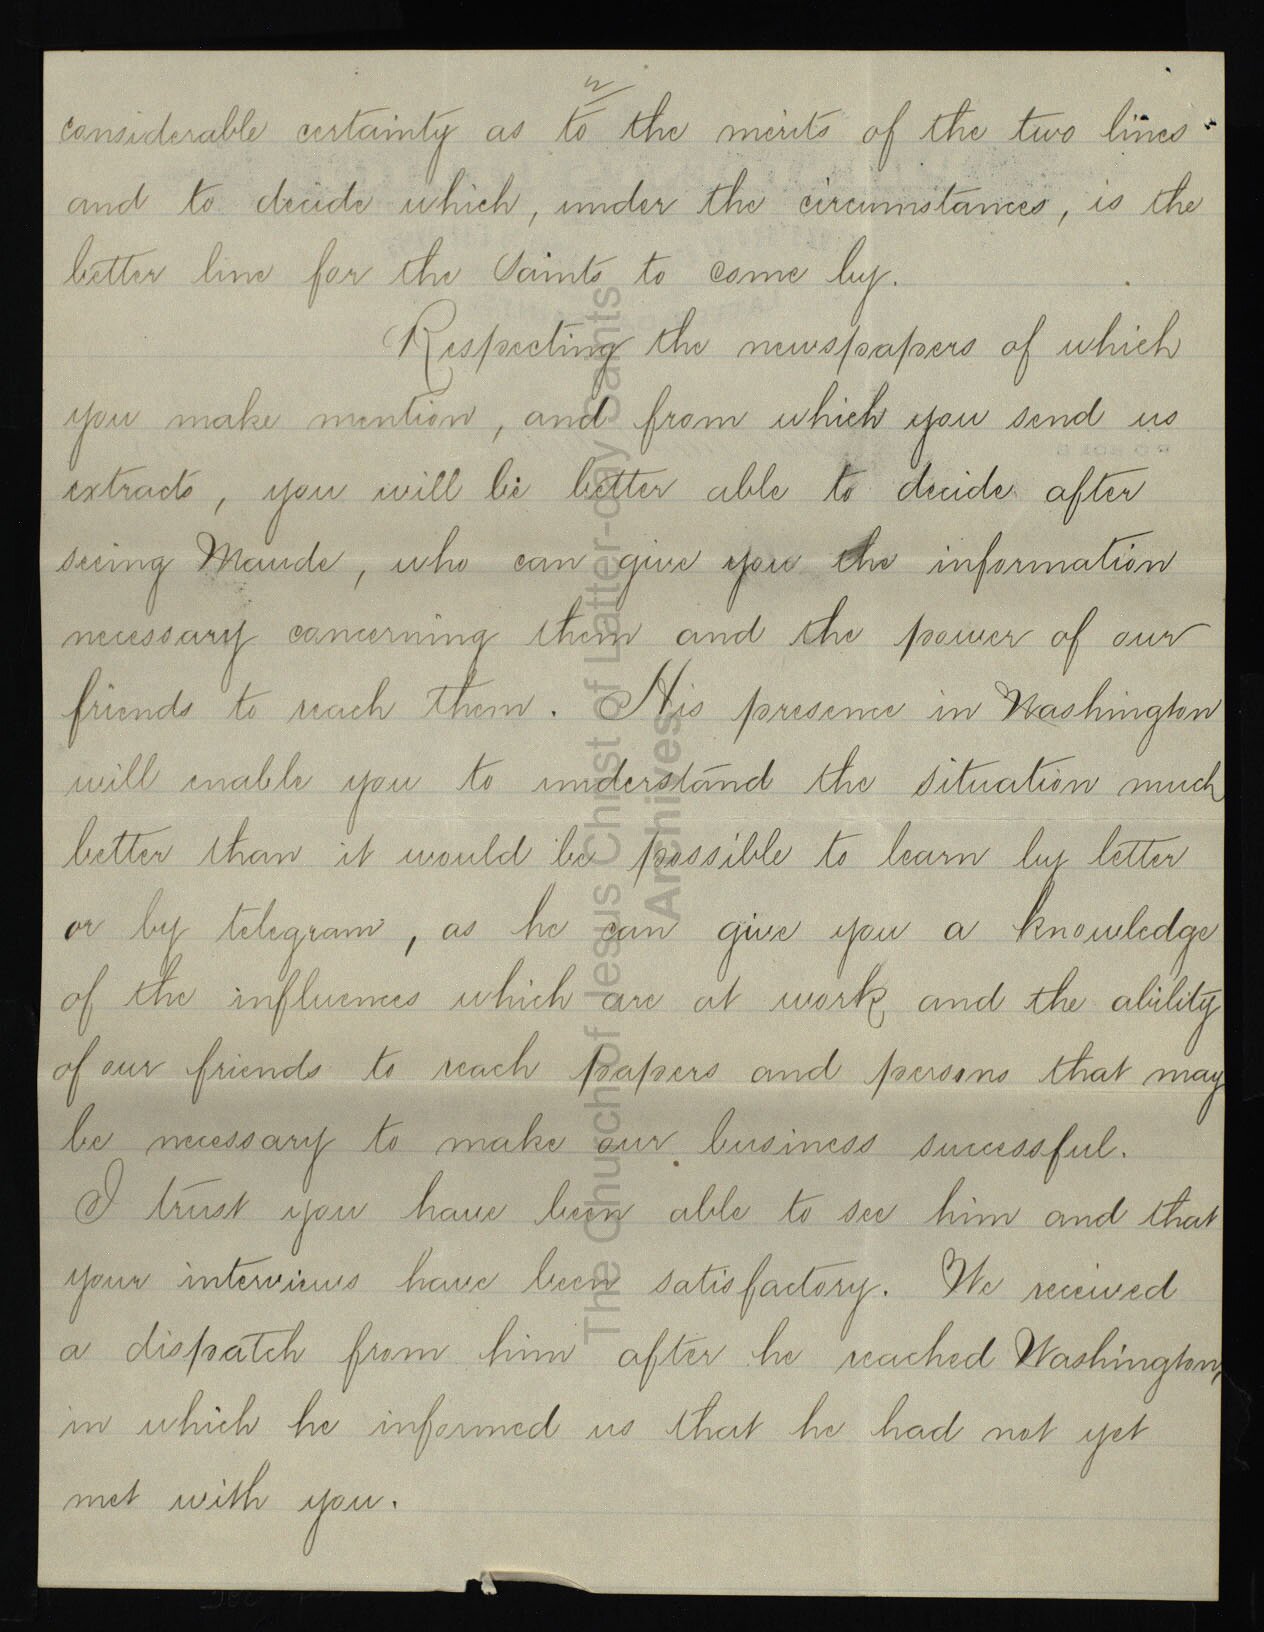 2
considerable certainty as to the merits of the two lines
and to decide which, under the circumstances, is the
better line for the Saints to come by.
Respecting the newspapers of which
you make mention, and from which you send us
extracts, you will be better able to decide after
seeing Maude, who can give you the information
necessary concerning them and the power of our
friends to reach them. His presence in Washington
will enable you to understand the situation much
better than it would be possible to learn by letter
or by telegram, as he can give you a knowledge
of the influences which are at work and the ability
of our friends to reach papers and persons that may
be necessary to make our business successful.
I trust you have been able to see him and that
your interviews have been satisfactory. We received
a dispatch from him after he reached Washington,
in which he informed us that he had not yet
met with you.
The Church of Jesus Christ of Latter-day Saints
Archives